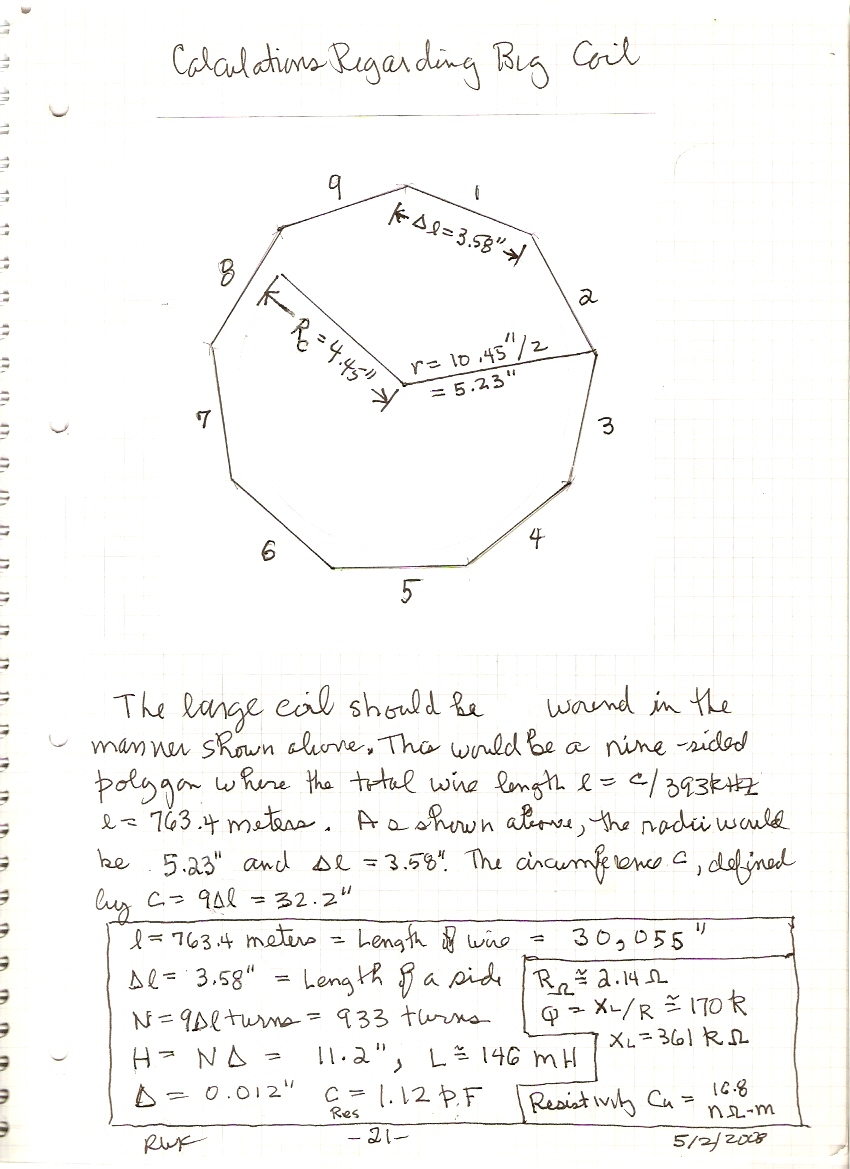 Calculations Regarding Big Coil
9
1
Δl = 3.58"
8
2
Rc = 4.45"
r = 10.45"/2
= 5.23"
7
3
6
4
5
The large coil should be wound in the
manner shown above. This would be a nine-sided
polygon where the total wire length l = c/393kHz
l = 763.4 meters. As shown above, the radii would
be 5.23" and Δl = 3.58". The circumference C, defined
by C = 9Δl = 32.2"
l = 763.4 meters = Length of wire = 30,055"
Δl = 3.58" = Length of a side
RΩ ≅ 2.14 Ω
N = 9Δl turns = 933 turns
Q = XL/R ≅ 170 k
XL = 361 k Ω
H = NΔ = 11.2", L ≅ 146 mH
Δ = 0.012" C Res = 1.12 pF
Resistivity Cu = 16.8 nΩ-m
RWK
-21-
5/2/2008